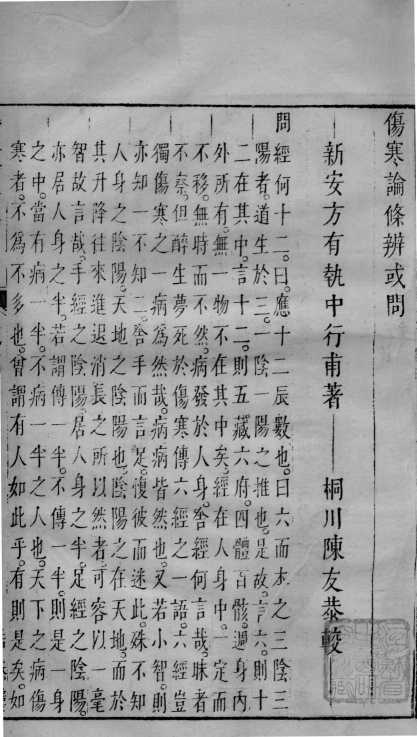 傷寒論條辨或問
新安方有執中行甫著　桐川陳友恭較
問經何十二。曰。應十二辰數也。曰六而本之三陰三
陽者。道生於三。一陰一陽之推也。是故言六。則十
二在其中。言十二。則五藏六府。四體百骸。週身內
外所有。無一物不在其中矣。經在人身中。一定而
不移。無時而不然。病發於人身。舍經何言哉。昧者
不察。但醉生夢死於傷寒傳六經之一語。六經豈
獨傷寒之一病爲然哉。病病皆然也。又若小智。則
亦知一不知二。舍手而言足。懷彼而迷此。殊不知
人身之陰陽。天地之陰陽也。陰陽之在天地。而於
其升降往來進退消長之所以然者。可容以一毫
智故言哉。手經之陰陽。居人身之半。足經之陰陽。
亦居人身之半。若謂傳一半。不傳一半。則是一身
之中。當有病一半。不病一半之人也。天下之病傷
寒者。不爲不多也。曾謂有人如此乎。有則是矣。如